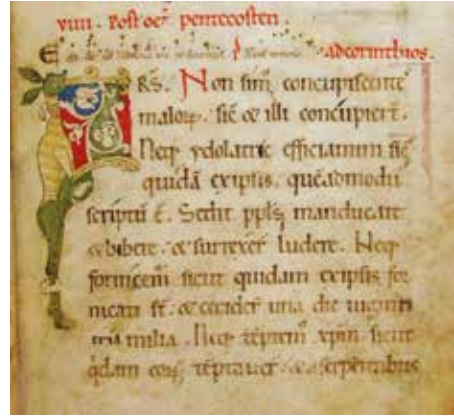 viiii. Post oct̄ pentecosten.
ad corinthios.
RS. Non sim̄ concupiscentes
maloꝝ. sic̄ ⁊ illi concupier̄t.
Neqꝫ ydolatrie efficiamini sic̄
quidā ex ipsis. quēadmodū
scriptū ē. Sedit ppl̄s manducare
⁊ bibere. ⁊ surrexer̄ ludere. Neqꝫ
fornicem̄ sicut quidam ex ipsis for
nicati st̄. ⁊ cecider̄ una die viginti
tria milia. Neqꝫ tēptem̄ xp̄m sicut
q̄dam eoꝝ tēptauer̄ ⁊ a serpentibus